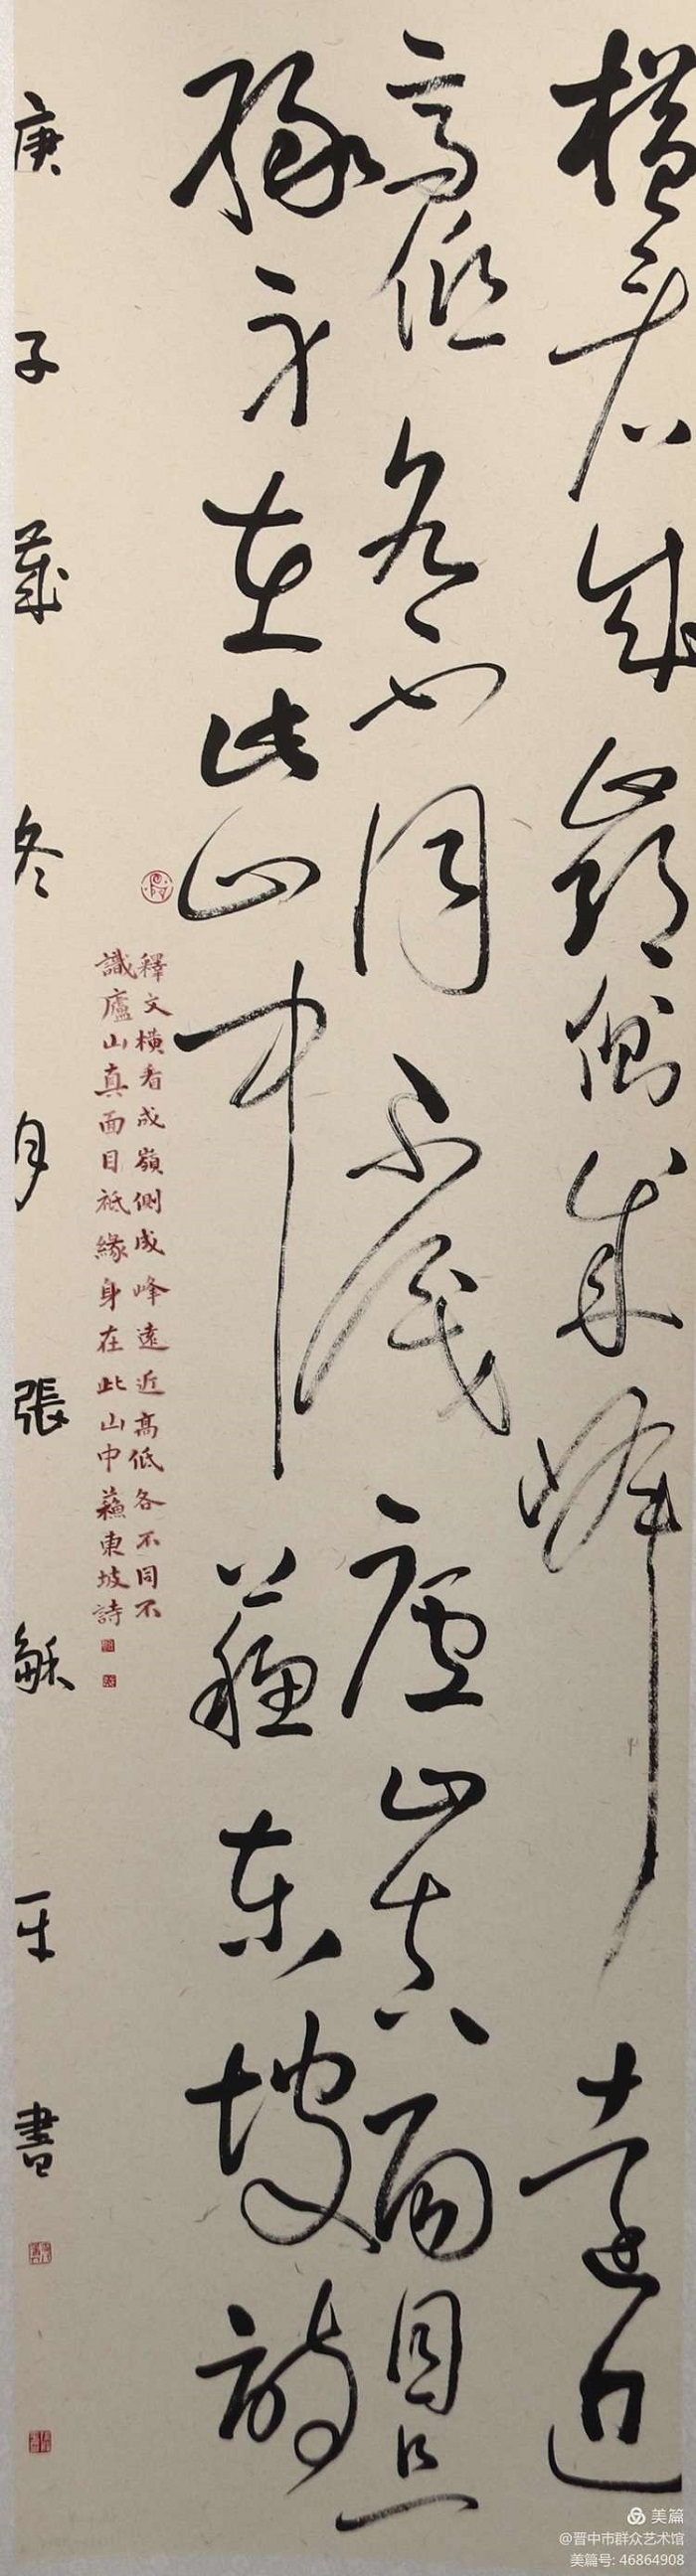 橫看成嶺側成峰遠近
高低各不同不識廬山真面目只
緣身在此山中蘇東坡詩
釋文橫看成嶺側成峰遠近高低各不同不
識廬山真面目祇緣身在此山中蘇東坡詩
庚子歲冬月張穌平書
美篇
@晋中市群众艺术馆
美篇号: 46864908